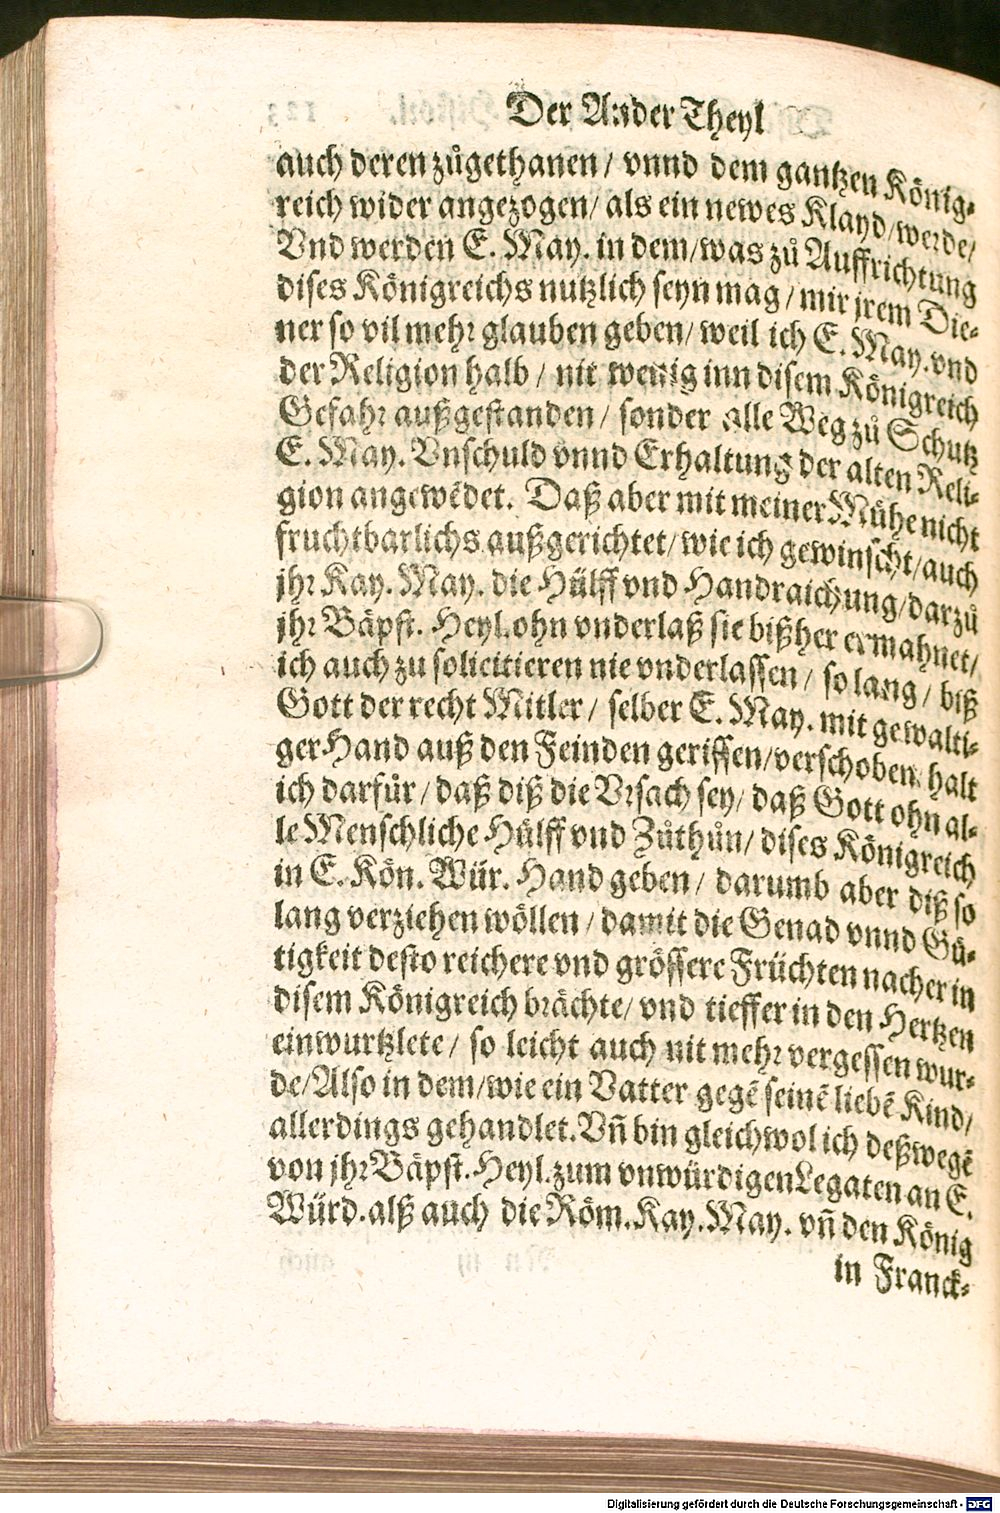 Der Ander Theyl
auch deren zůgethanen / vnnd dem gantzen König⸗
reich wider angezogen / als ein newes Klayd / werde /
Vnd werden E. May. in dem / was zů Auffrichtung
dises Königreichs nutzlich seyn mag / mir jrem Die⸗
ner so vil mehr glauben geben / weil ich E. May. vnd
der Religion halb / nit wenig inn disem Königreich
Gefahr außgestanden / sonder alle Weg zů Schutz
E. May. Vnschuld vnnd Erhaltung der alten Reli⸗
gion angewēdet. Daß aber mit meiner Můhe nicht
fruchtbarlichs außgerichtet / wie ich gewinscht / auch
jhr Kay. May. die Hülff vnd Handraichung / darzů
jhr Bäpst. Heyl. ohn vnderlaß sie bißher ermahnet /
ich auch zu solicitieren nie vnderlassen / so lang / biß
Gott der recht Mitler / selber E. May. mit gewalti⸗
ger Hand auß den Feinden gerissen / verschoben, halt
ich darfür / daß diß die Vrsach sey / daß Gott ohn al⸗
le Menschliche Hülff vnd Zůthůn / dises Königreich
in E. Kön. Wür. Hand geben / darumb aber diß so
lang verziehen wöllen / damit die Genad vnnd Gü⸗
tigkeit desto reichere vnd grössere Früchten nacher in
disem Königreich brächte / vnd tieffer in den Hertzen
einwurtzlete / so leicht auch nit mehr vergessen wur⸗
de / Also in dem / wie ein Vatter gegē seinē liebē Kind /
allerdings gehandlet. Vñ bin gleichwol ich deßwegē
von jhr Bäpst. Heyl. zum vnwürdigen Legaten an E.
Würd. alß auch die Röm. Kay. May. vñ den König
in Franck⸗
Digitalisierung gefördert durch die Deutsche Forschungsgemeinschaft - DFG